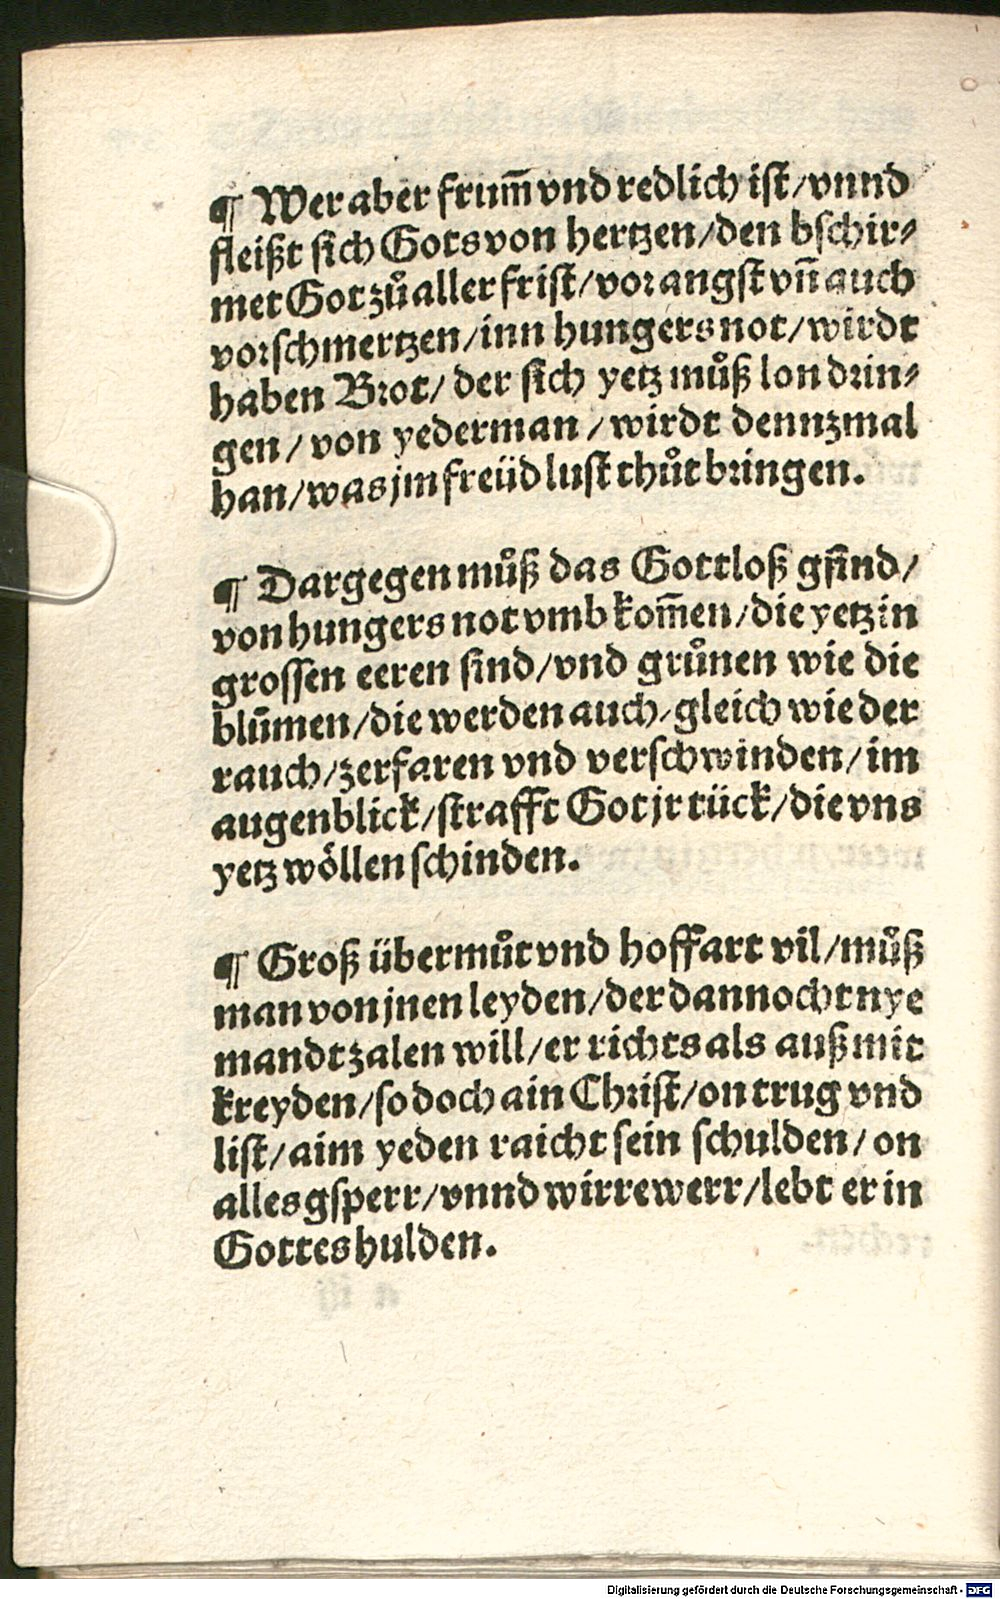 ¶ Wer aber frum̄ vnd redlich ist/vnnd
fleißt sich Gots von hertzen/den bschir⸗
met Got zů aller frist/vor angst vn̄ auch
vor schmertzen/inn hungers not/wirdt
haben Brot/ der sich yetz můß lon drin⸗
gen/ von yederman/wirdt dennzmal
han/was jm freüd lust thůt bringen.
¶ Dargegen můß das Gottloß gsind/
von hungers not vmb kom̄en/die yetz in
grossen eeren sind/vnd grůnen wie die
blům̄en/die werden auch/gleich wie der
rauch/zerfaren vnd verschwinden/im
augenblick/strafft Got jr tück/die vns
yetz wöllen schinden.
¶ Groß übermůt vnd hoffart vil/můß
man von jnen leyden/der dannocht nye
mandt zalen will/er richts als auß mit
kreyden/so doch ain Christ/on trug vnd
list/aim yeden raicht sein schulden/on
alles gsperr/vnnd wirrewerr/lebt er in
Gottes hulden.
Digitalisierung gefördert durch die Deutsche Forschungsgemeinschaft - DFG